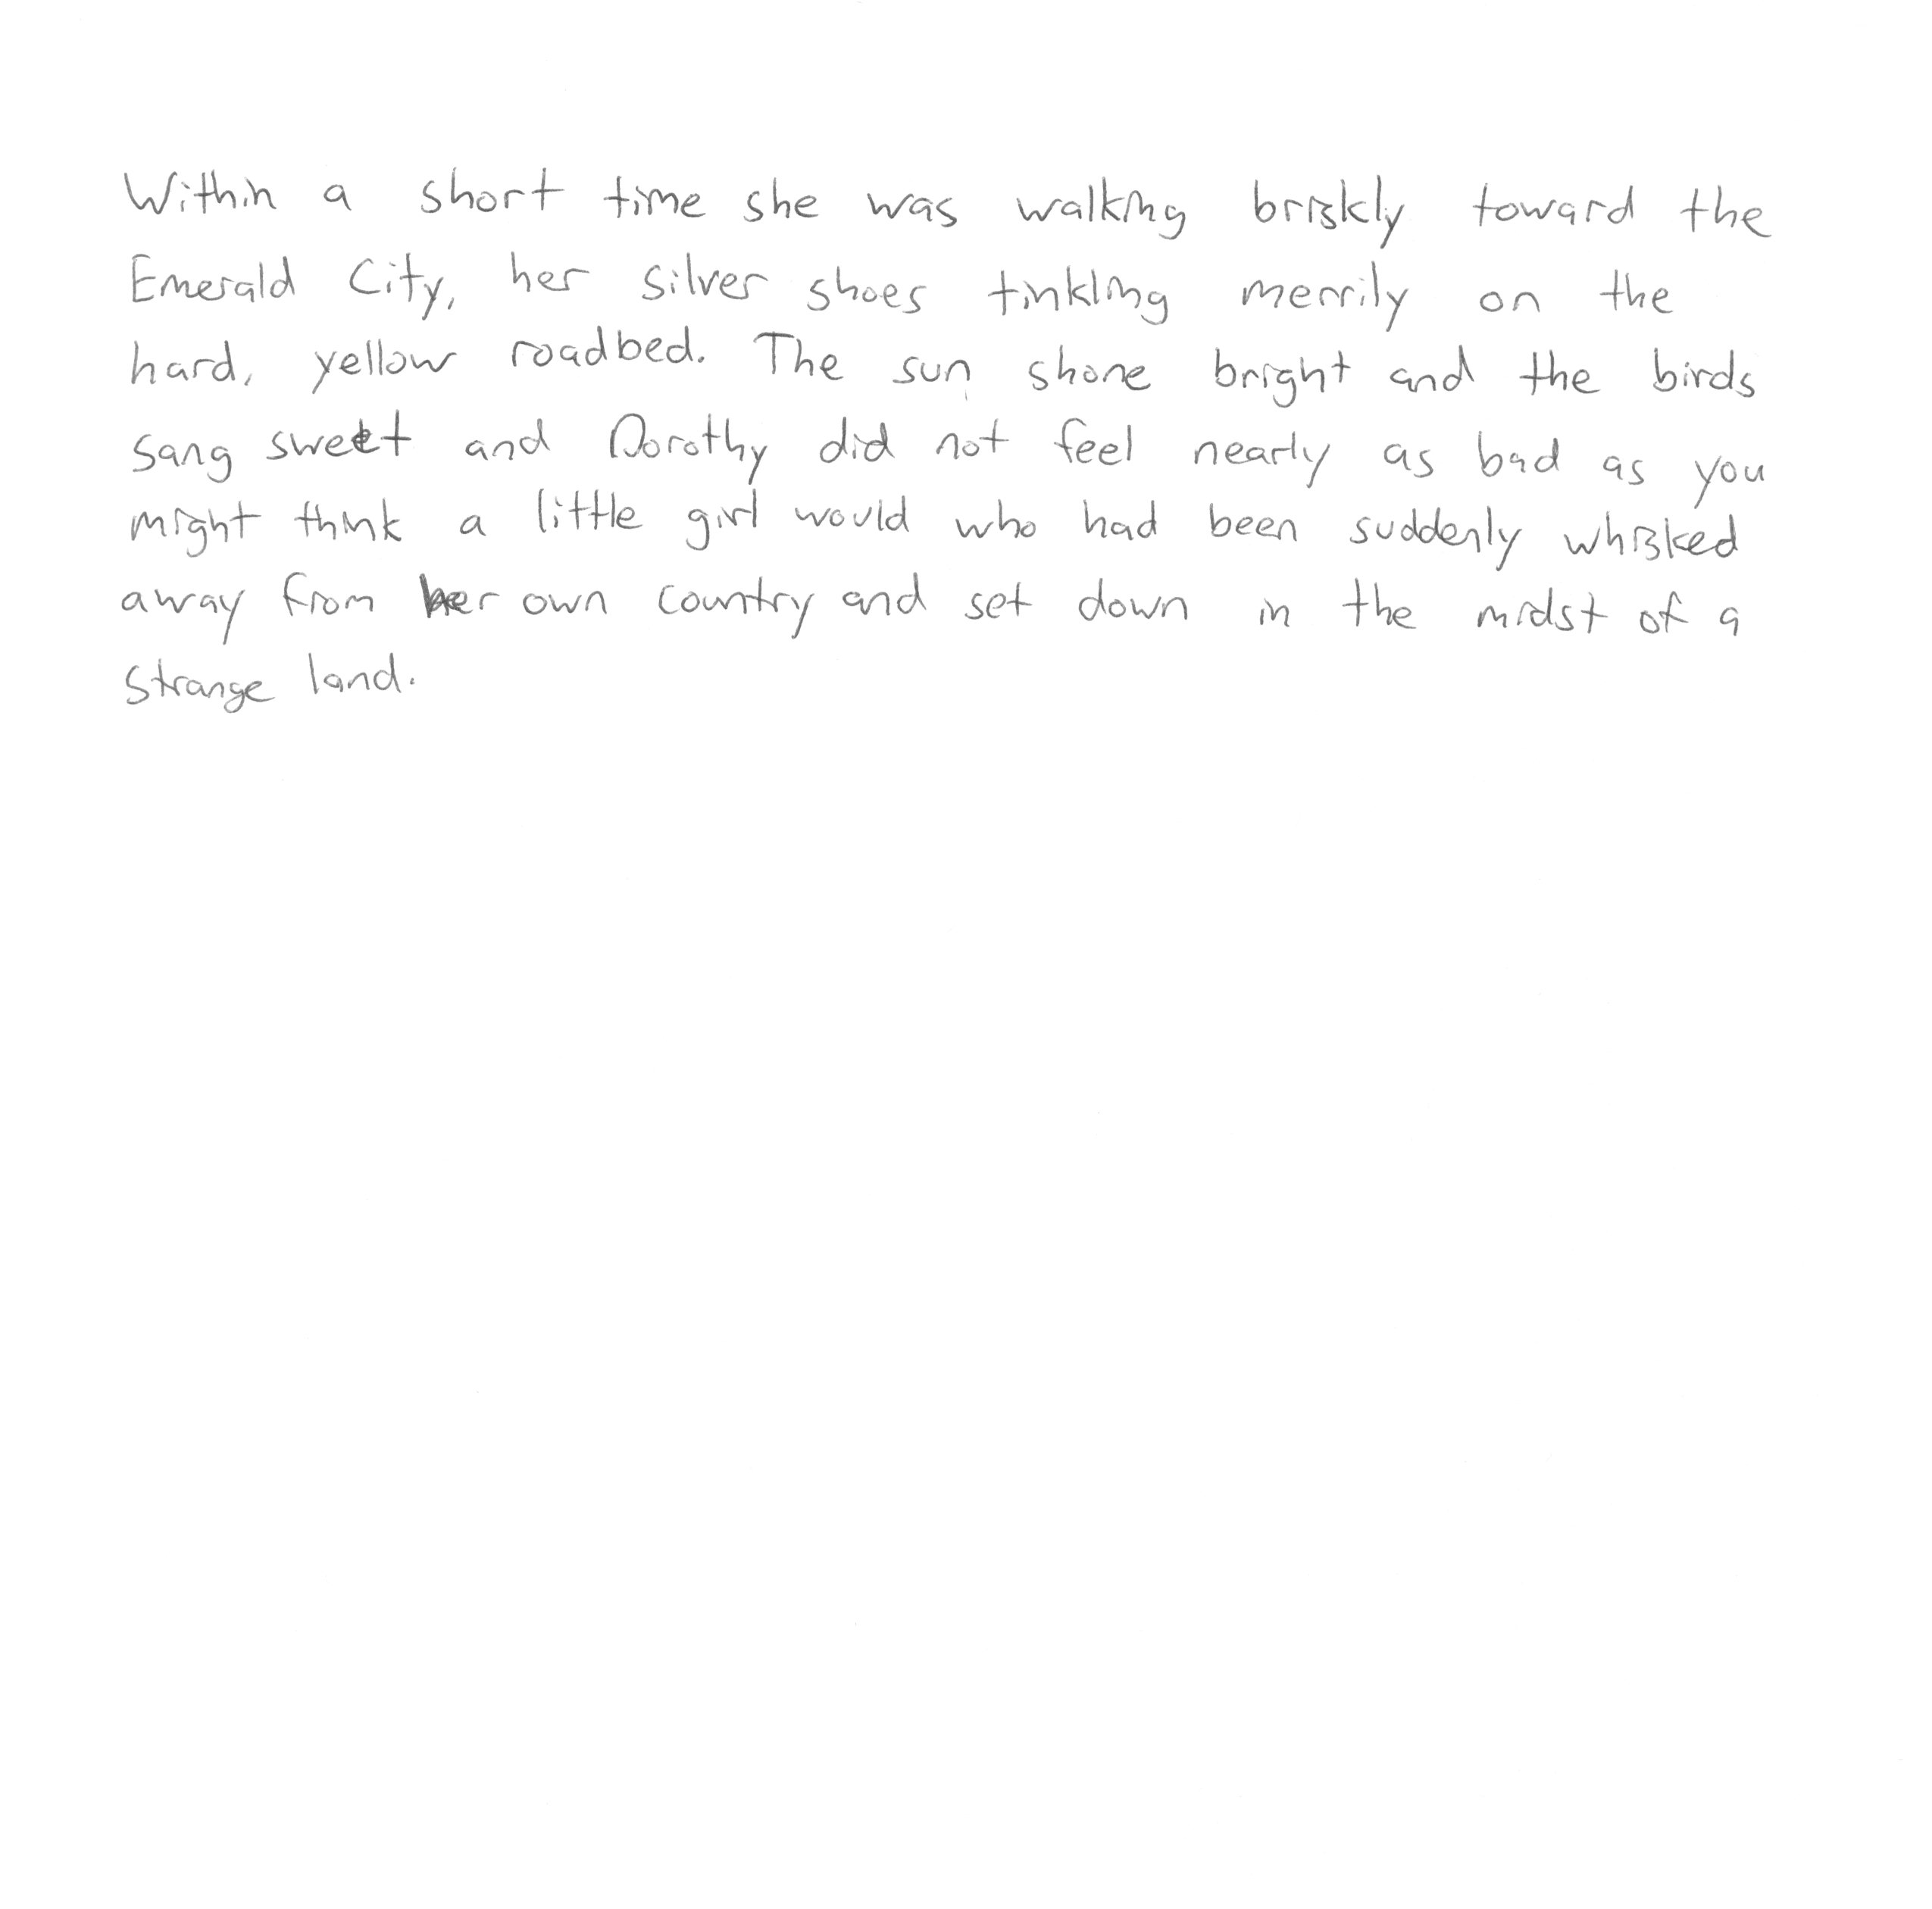 Within a short time she was walking briskly toward the
Emerald City, her silver shoes tinkling merrily on the
hard, yellow roadbed. The sun shone bright and the birds
sang sweet and Dorothy did not feel nearly as bad as you
might think a little girl would who had been suddenly whisked
away from her own country and set down in the midst of a
strange land.